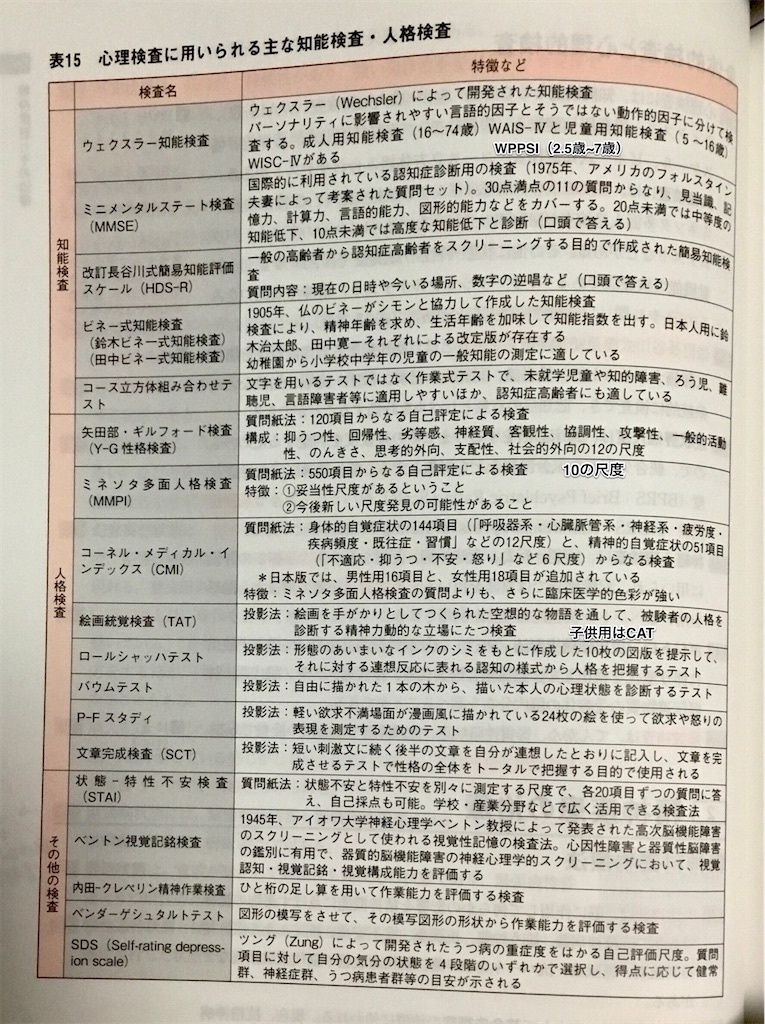 表15 心理検査に用いられる主な知能検査・人格検査
検査名
特徴など
知能検査
ウェクスラー知能検査
ウェクスラー（Wechsler）によって開発された知能検査
パーソナリティに影響されやすい言語的因子とそうではない動作的因子に分けて検
査する。成人用知能検査（16～74歳）WAIS-Ⅳと児童用知能検査（5～16歳）
WISC-Ⅳがある
WPPSI（2.5歳~7歳）
ミニメンタルステート検査
（MMSE）
国際的に利用されている認知症診断用の検査（1975年、アメリカのフォルスタイン
夫妻によって考案された質問セット）。30点満点の11の質問からなり、見当識、記
憶力、計算力、言語的能力、図形的能力などをカバーする。20点未満では中等度の
知能低下、10点未満では高度な知能低下と診断（口頭で答える）
改訂長谷川式簡易知能評価
スケール（HDS-R）
一般の高齢者から認知症高齢者をスクリーニングする目的で作成された簡易知能検
査
質問内容：現在の日時や今いる場所、数字の逆唱など（口頭で答える）
ビネー式知能検査
（鈴木ビネー式知能検査）
（田中ビネー式知能検査）
1905年、仏のビネーがシモンと協力して作成した知能検査
検査により、精神年齢を求め、生活年齢を加味して知能指数を出す。日本人用に鈴
木治太郎、田中寛一それぞれによる改定版が存在する
幼稚園から小学校中学年の児童の一般知能の測定に適している
コース立方体組み合わせテ
スト
文字を用いるテストではなく作業式テストで、未就学児童や知的障害、ろう児、難
聴児、言語障害者等に適用しやすいほか、認知症高齢者にも適している
人格検査
矢田部・ギルフォード検査
（Y-G 性格検査）
質問紙法：120項目からなる自己評定による検査
構成：抑うつ性、回帰性、劣等感、神経質、客観性、協調性、攻撃性、一般的活動
性、のんきさ、思考的外向、支配性、社会的外向の12の尺度
ミネソタ多面人格検査
（MMPI）
質問紙法：550項目からなる自己評定による検査
10の尺度
特徴：①妥当性尺度があるということ
②今後新しい尺度発見の可能性があること
コーネル・メディカル・イ
ンデックス（CMI）
質問紙法：身体的自覚症状の144項目（「呼吸器系・心臓脈管系・神経系・疲労度・
疾病頻度・既往症・習慣」などの12尺度）と、精神的自覚症状の51項目
（「不適応・抑うつ・不安・怒り」など6尺度）からなる検査
＊日本版では、男性用16項目と、女性用18項目が追加されている
特徴：ミネソタ多面人格検査の質問よりも、さらに臨床医学的色彩が強い
絵画統覚検査（TAT）
投影法：絵画を手がかりとしてつくられた空想的な物語を通して、被験者の人格を
診断する精神力動的な立場にたつ検査
子供用はCAT
ロールシャッハテスト
投影法：形態のあいまいなインクのシミをもとに作成した10枚の図版を提示して、
それに対する連想反応に表れる認知の様式から人格を把握するテスト
バウムテスト
投影法：自由に描かれた1本の木から、描いた本人の心理状態を診断するテスト
P-F スタディ
投影法：軽い欲求不満場面が漫画風に描かれている24枚の絵を使って欲求や怒りの
表現を測定するためのテスト
文章完成検査（SCT）
投影法：短い刺激文に続く後半の文章を自分が連想したとおりに記入し、文章を完
成させるテストで性格の全体をトータルで把握する目的で使用される
その他の検査
状態－特性不安検査
（STAI）
質問紙法：状態不安と特性不安を別々に測定する尺度で、各20項目ずつの質問に答
え、自己採点も可能。学校・産業分野などで広く活用できる検査法
ベントン視覚記銘検査
1945年、アイオワ大学神経心理学ベントン教授によって発表された高次脳機能障害
のスクリーニングとして使われる視覚性記憶の検査法。心因性障害と器質性脳障害
の鑑別に有用で、器質的脳機能障害の神経心理学的スクリーニングにおいて、視覚
認知・視覚記銘・視覚構成能力を評価する
内田-クレペリン精神作業検査
ひと桁の足し算を用いて作業能力を評価する検査
ベンダーゲシュタルトテスト
図形の模写をさせて、その模写図形の形状から作業能力を評価する検査
SDS（Self-rating depress-
ion scale）
ツング（Zung）によって開発されたうつ病の重症度をはかる自己評価尺度。質問
項目に対して自分の気分の状態を4段階のいずれかで選択し、得点に応じて健常
群、神経症群、うつ病患者群等の目安が示される